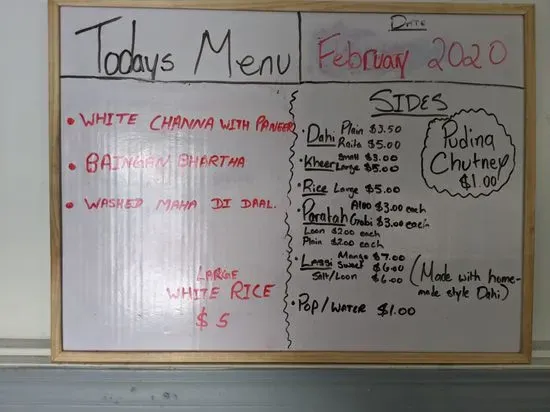 Todays Menu
DATE
February 2020
• WHITE CHANNA WITH PANEER
• BAINGAN BHARTHA
• WASHED MAHA DI DAAL.
LARGE
WHITE RICE
$5
SIDES
• Dahi Plain $3.50
Raita $5.00
• Kheer Small $3.00
Large $5.00
• Rice Large $5.00
• Paratah Aloo $3.00 each
Gobi $3.00 each
Loon $2.00 each
Plain $2.00 each
• Lassi Mango $7.00
Sweet $6.00
Salt/Loon $6.00
(Made with home-
made style Dahi)
• Pop/Water $1.00
Pudina
Chutney
$1.00